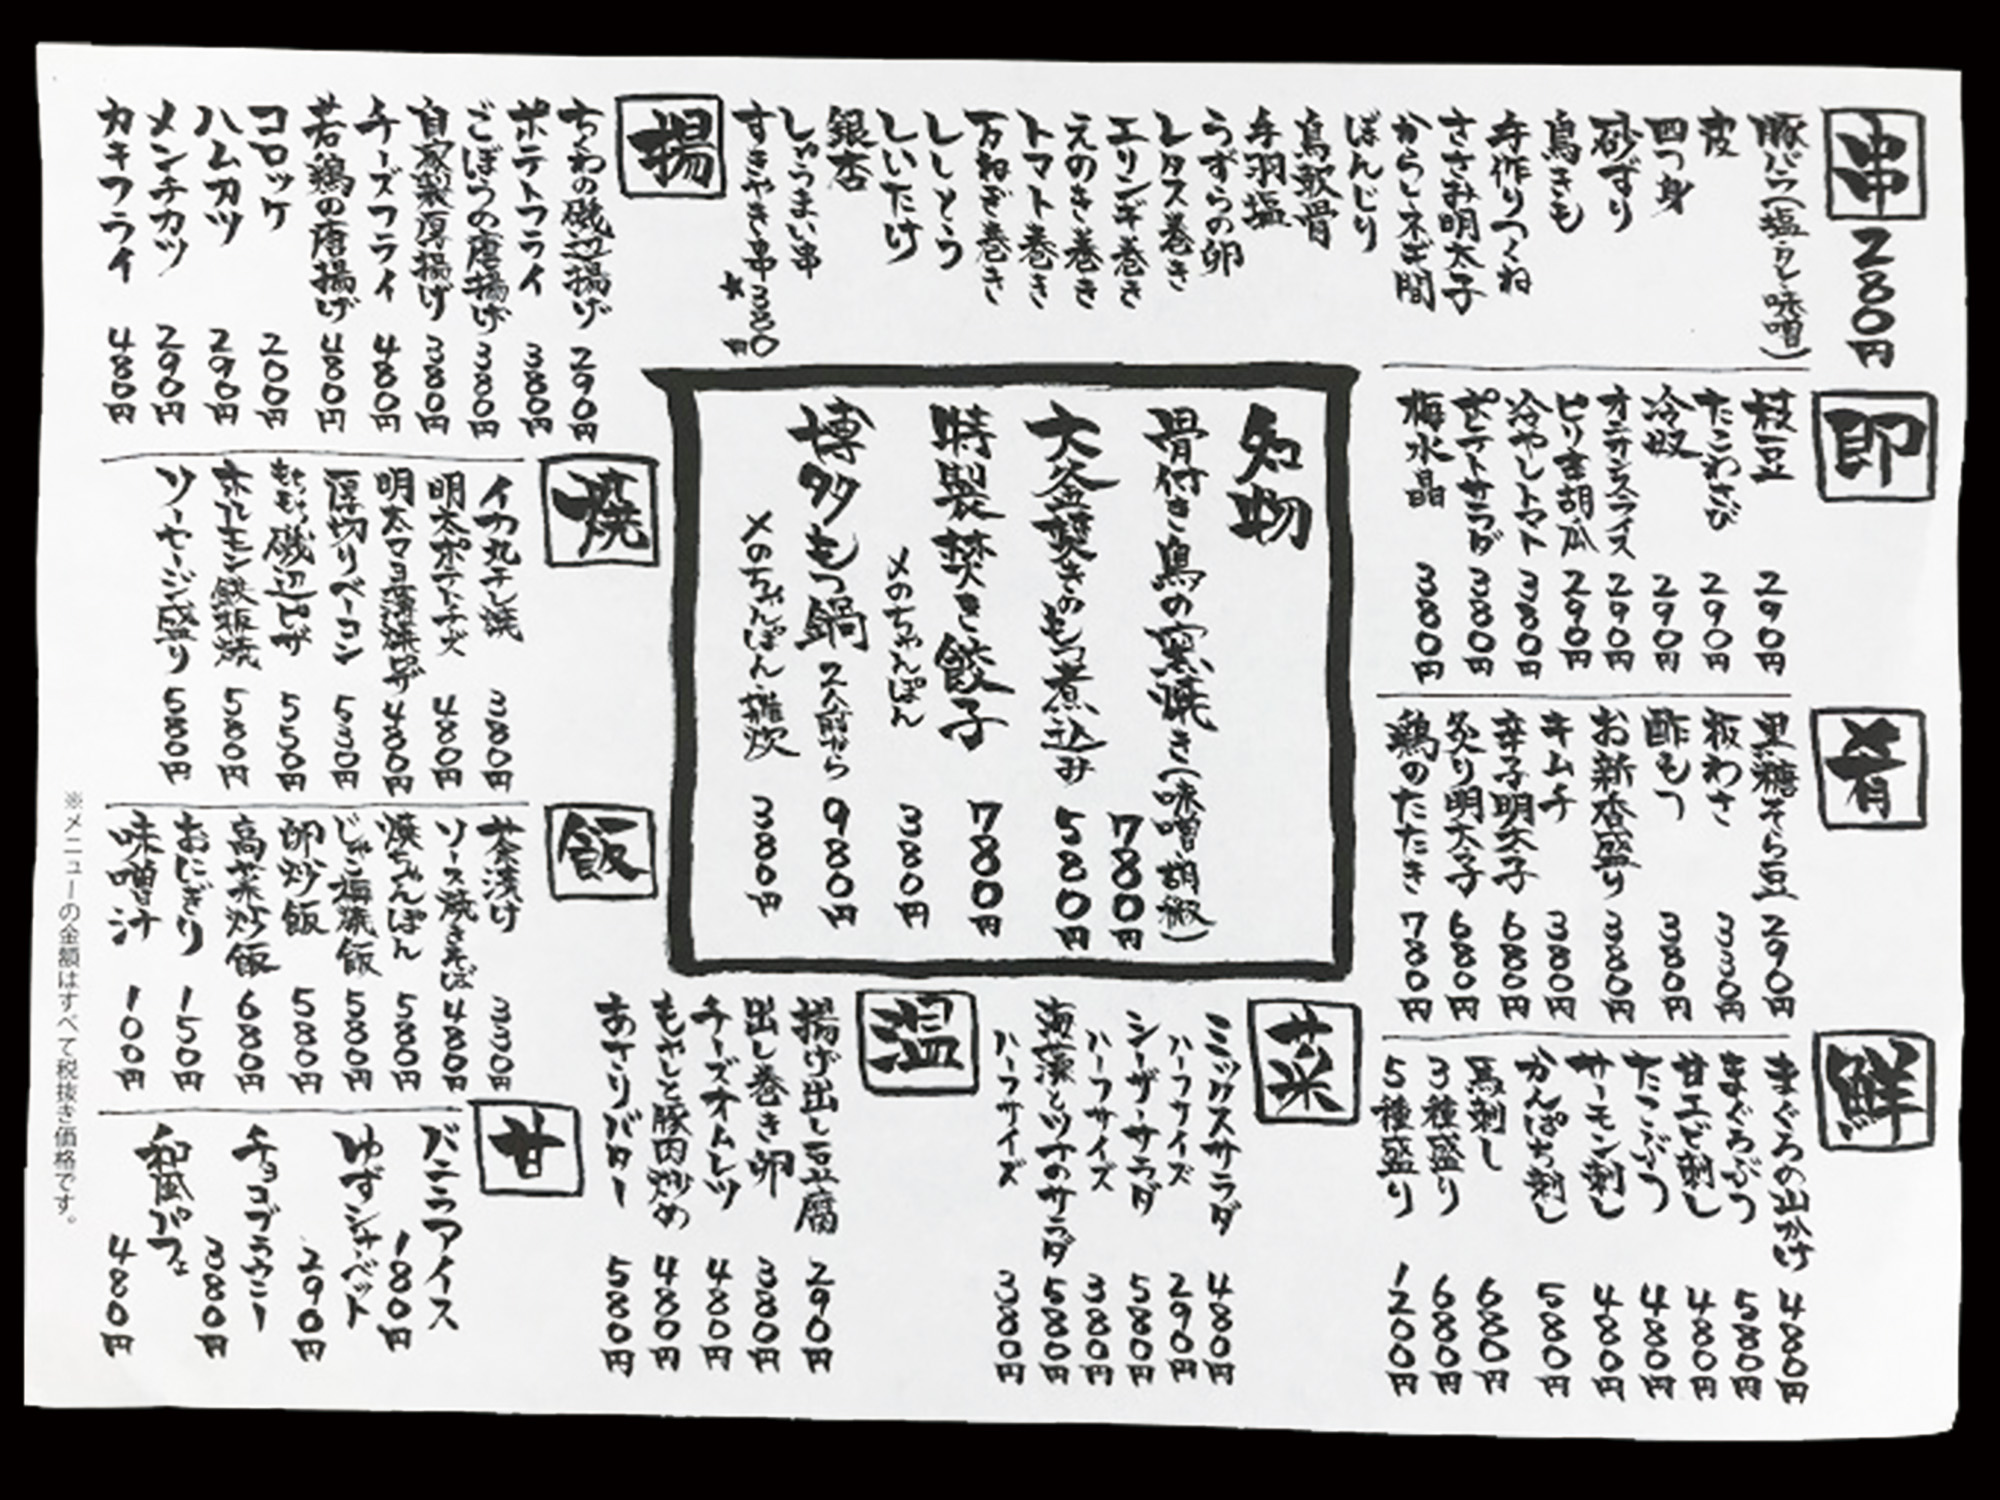 串 280円
豚バラ(塩・タレ・味噌)
皮
四つ身
砂ずり
鳥きも
手作りつくね
ささみ明太子
からしネギ間
ぼんじり
鳥軟骨
手羽塩
うずらの卵
レタス巻き
エリンギ巻き
えのき巻き
トマト巻き
万ねぎ巻き
ししとう
しいたけ
銀杏
しゅうまい串
すきやき串 380円
★
揚
ちくわの磯辺揚げ 290円
ポテトフライ 380円
ごぼうの唐揚げ 380円
自家製厚揚げ 380円
チーズフライ 480円
若鶏の唐揚げ 480円
コロッケ 200円
ハムカツ 290円
メンチカツ 290円
カキフライ 480円
即
枝豆 290円
たこわさび 290円
冷奴 290円
オニオンスライス 290円
ピリ辛胡瓜 290円
冷やしトマト 380円
ポテトサラダ 380円
梅水晶 380円
名物
骨付き鳥の窯焼き(味噌・胡椒) 780円
大釜焚きのもつ煮込み 580円
特製焚き餃子 780円
〆のちゃんぽん 380円
博多もつ鍋 2人前から 980円
〆のちゃんぽん・雑炊 380円
焼
イカ丸干し焼 380円
明太ポテトチーズ 480円
明太マヨ薄焼ピザ 480円
厚切りベーコン 530円
もちもち磯辺ピザ 550円
ホルモン鉄板焼 580円
ソーセージ盛り 580円
肴
黒糖そら豆 290円
板わさ 330円
酢もつ 380円
お新香盛り 380円
キムチ 380円
辛子明太子 680円
炙り明太子 680円
鶏のたたき 780円
飯
茶漬け 330円
ソース焼きそば 480円
焼ちゃんぽん 580円
じゃこ梅焼飯 580円
卵炒飯 580円
高菜炒飯 680円
おにぎり 150円
味噌汁 100円
鮮
まぐろの出がけ 480円
まぐろぶつ 580円
甘エビ刺し 480円
たこぶつ 480円
サーモン刺し 480円
かんぱち刺し 580円
馬刺し 680円
3種盛り 680円
5種盛り 1200円
菜
ミックスサラダ 480円
ハーフサイズ 290円
シーザーサラダ 580円
ハーフサイズ 380円
海藻とツナのサラダ 580円
ハーフサイズ 380円
温
揚げ出し豆腐 290円
出し巻き卵 380円
チーズオムレツ 480円
もやしと豚肉炒め 480円
あさりバター 580円
甘
バニラアイス 180円
ゆずシャーベット 290円
チョコブラウニー 380円
和風パフェ 480円
※メニューの金額はすべて税抜き価格です。